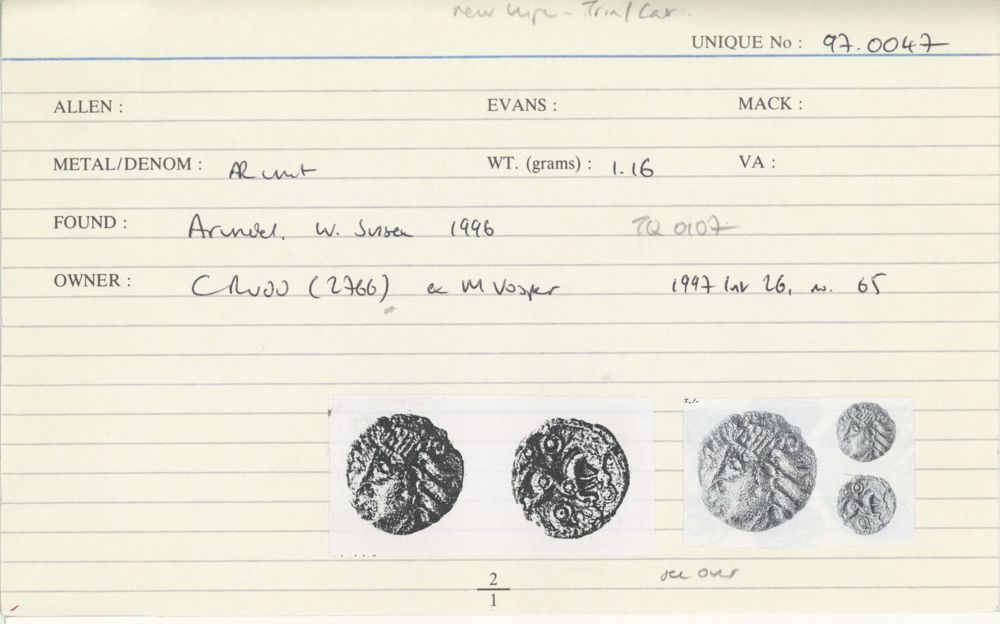 UNIQUE No : 97.0047
ALLEN : EVANS : MACK :
METAL/DENOM : AR unit WT. (grams) : 1.16 VA :
FOUND : Arundel, W. Sussex 1996 TQ 0107
OWNER : C RUDD (2766) ex M Vosper 1997 Inv 26, no. 65
see over
2
1